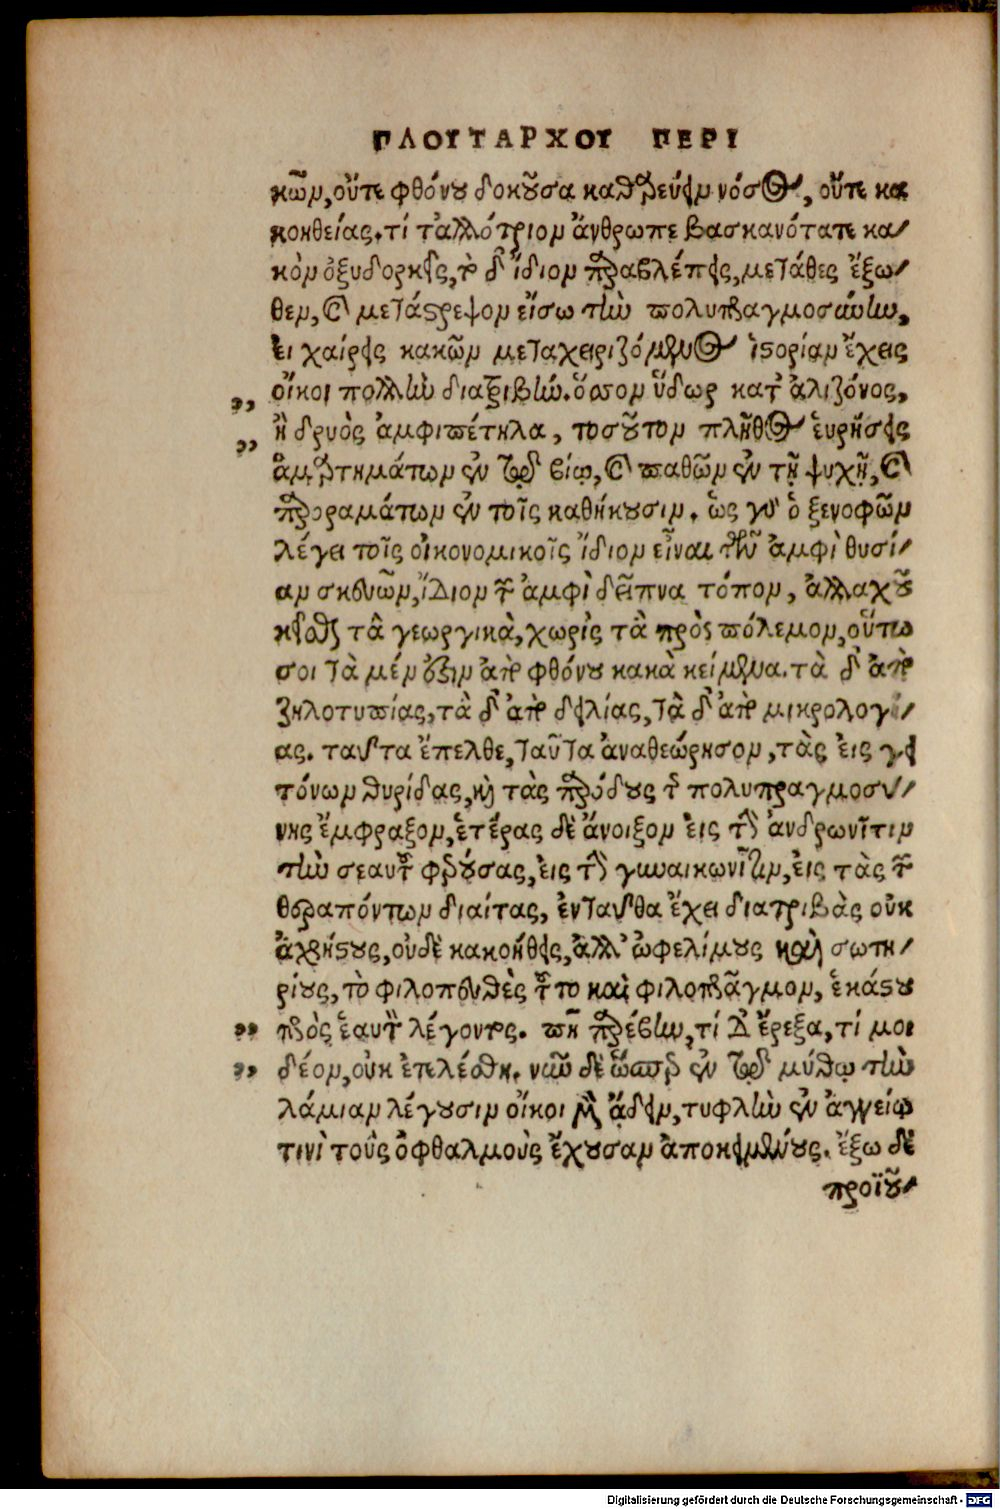 ΠΛΟΥΤΑΡΧΟΥ ΠΕΡΙ
κῶν, οὔτε φθόνου δοκοῦσα καθαρεύειν νόσος, οὔτε κα
κοηθείας. τί τἀλλότριον ἄνθρωπε βασκανότατε κα-
κὸν ὀξυδορκεῖς, τὸ δ' ἴδιον παραβλέπεις, μετάθες ἔξω-
θεν, καὶ μετάστρεψον εἴσω τὴν πολυπραγμοσύνην,
εἰ χαίρεις κακῶν μεταχειριζόμενος ἱστορίαν ἔχεις
οἴκοι πολλὴν διατριβήν. ὅσσον ὕδωρ κατ' ἀλιζόνος,
ἢ δρυὸς ἀμφιπέτηλα, τοσοῦτον πλῆθος εὑρήσεις
ἁμαρτημάτων ἐν τῷ βίῳ, καὶ παθῶν ἐν τῇ ψυχῇ, καὶ
παροραμάτων ἐν τοῖς καθήκουσιν. ὡς γὰρ ὁ ξενοφῶν
λέγει τοῖς οἰκονομικοῖς ἴδιον εἶναι τῶν ἀμφὶ θυσί-
αν σκευῶν, ἴδιον τῶν ἀμφὶ δεῖπνα τόπον, ἀλλαχοῦ
κεῖσθαι τὰ γεωργικὰ, χωρὶς τὰ πρὸς πόλεμον, οὕτω
σοι τὰ μέν ἐστιν ἀπὸ φθόνου κακὰ κείμενα. τὰ δ' ἀπὸ
ζηλοτυπίας, τὰ δ' ἀπὸ δειλίας, τὰ δ' ἀπὸ μικρολογί-
ας. ταῦτα ἔπελθε, ταῦτα ἀναθεώρησον, τὰς εἰς γει
τόνων θυρίδας, καὶ τὰς παρόδους τῆς πολυπραγμοσύ-
νης ἔμφραξον, ἑτέρας δὲ ἄνοιξον εἰς τὴν ἀνδρωνῖτιν
τὴν σεαυτοῦ φερούσας, εἰς τὴν γυναικωνῖτιν, εἰς τὰς τῶν
θεραπόντων διαίτας, ἐνταῦθα ἔχει διατριβὰς οὐκ
ἀχρήστους, οὐδὲ κακοήθεις, ἀλλ' ὠφελίμους καὶ σωτη-
ρίους, τὸ φιλοπευθὲς τοῦτο καὶ φιλοπρᾶγμον, ἑκάστου
πρὸς ἑαυτὸν λέγοντος. πῆ παρέβην, τί δ' ἔρεξα, τί μοι
δέον, οὐκ ἐτελέσθη. νῦν δὲ ὥσπερ ἐν τῷ μύθῳ τὴν
λάμιαν λέγουσιν οἴκοι μὲν ᾄδειν, τυφλὴν ἐν ἀγγείῳ
τινὶ τοὺς ὀφθαλμοὺς ἔχουσαν ἀποκειμένους. ἔξω δὲ
προϊοῦ-
Digitalisierung gefördert durch die Deutsche Forschungsgemeinschaft - DFG